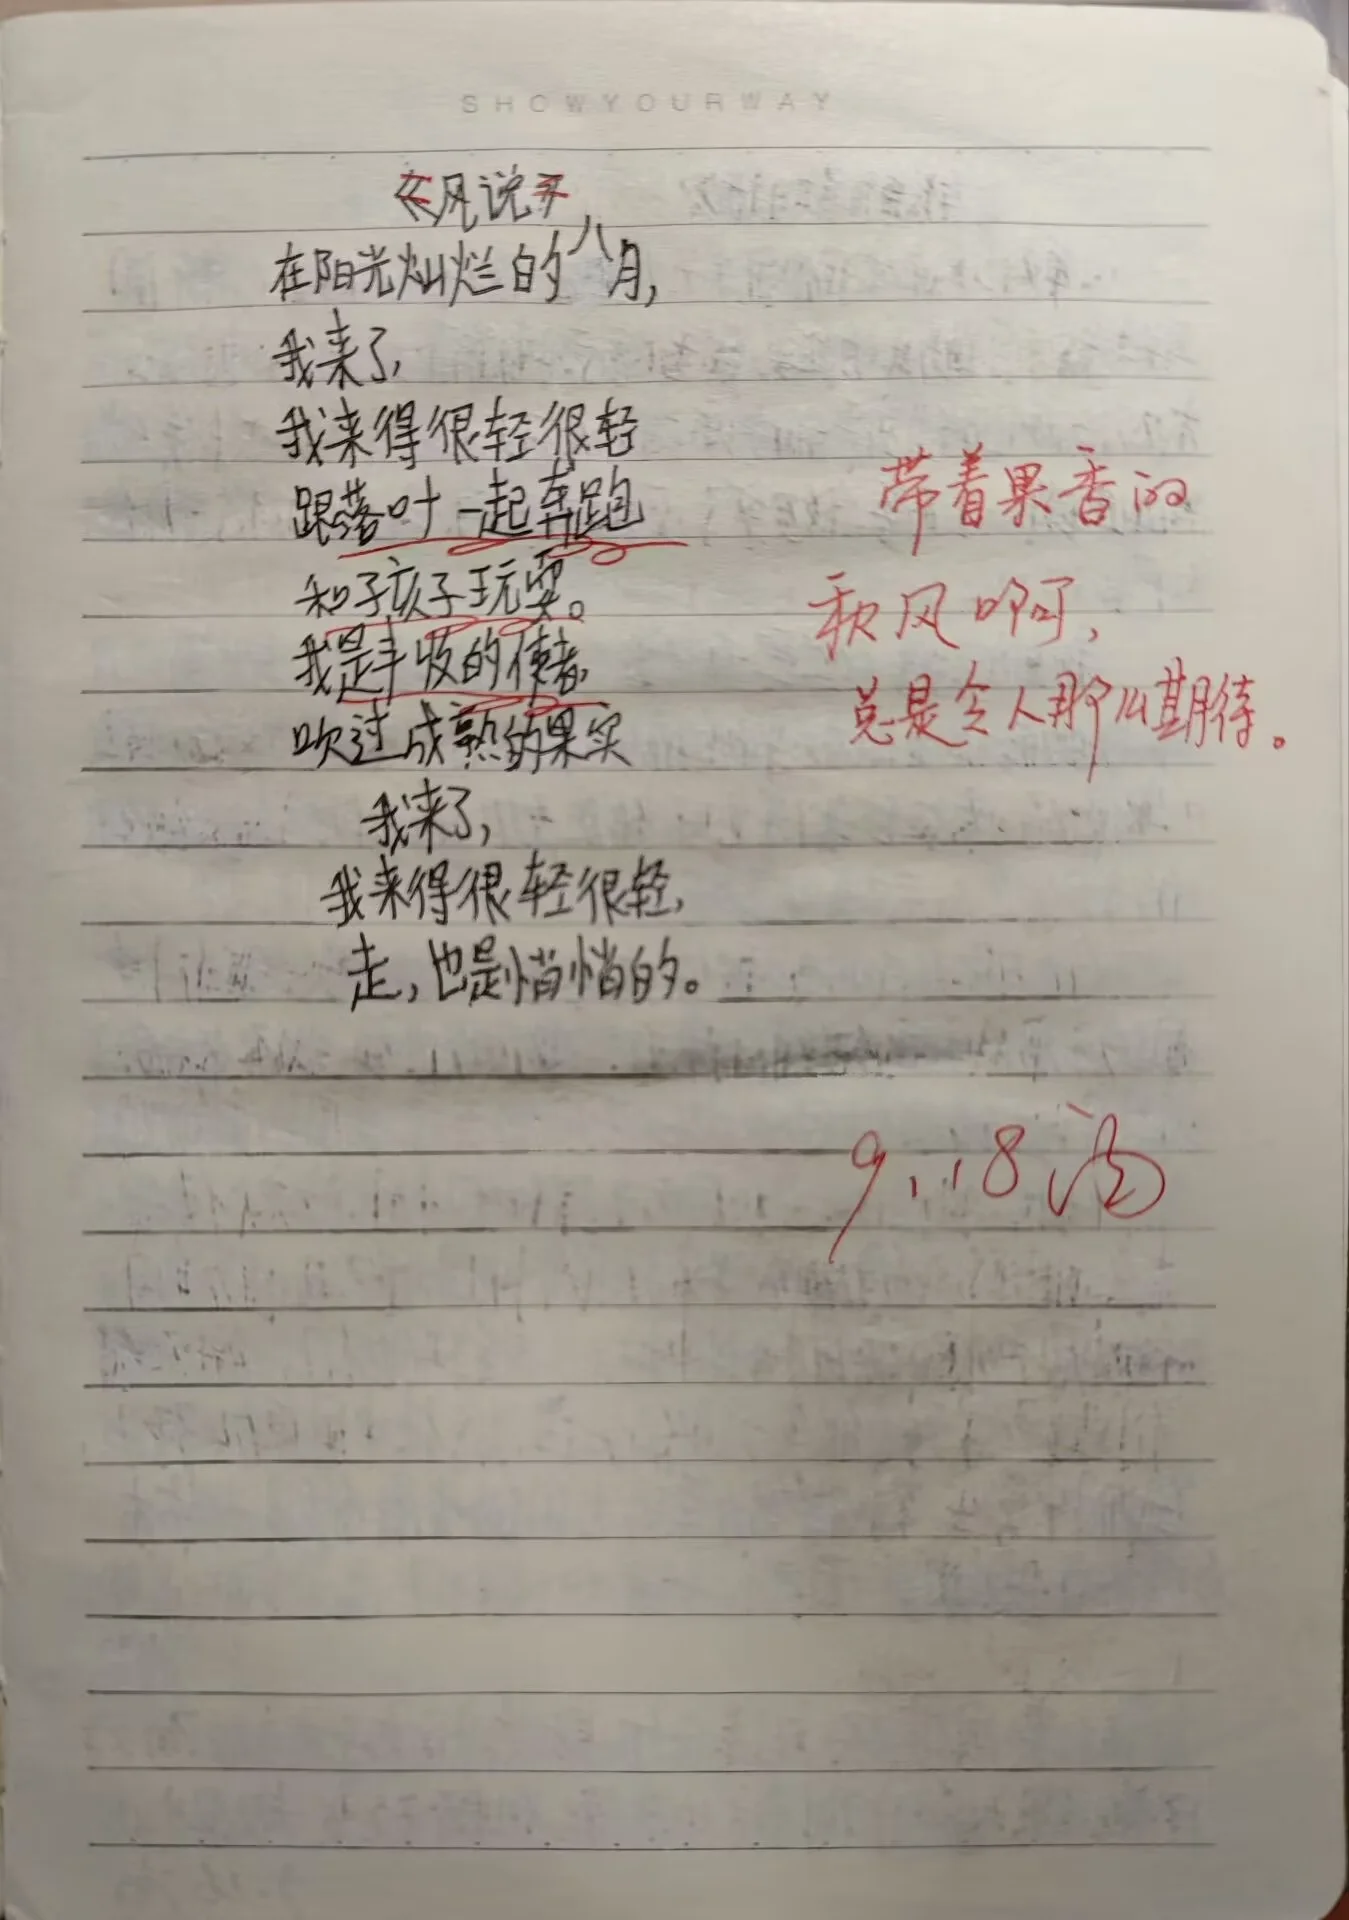 SHOWYOURWAY
《风说》
在阳光灿烂的八月,
我来了,
我来得很轻很轻
跟落叶一起奔跑
和孩子玩耍。
我是丰收的使者,
吹过成熟的果实
我来了,
我来得很轻很轻,
走,也是悄悄的。
带着果香的
秋风啊,
总是令人那么期待。
9.18